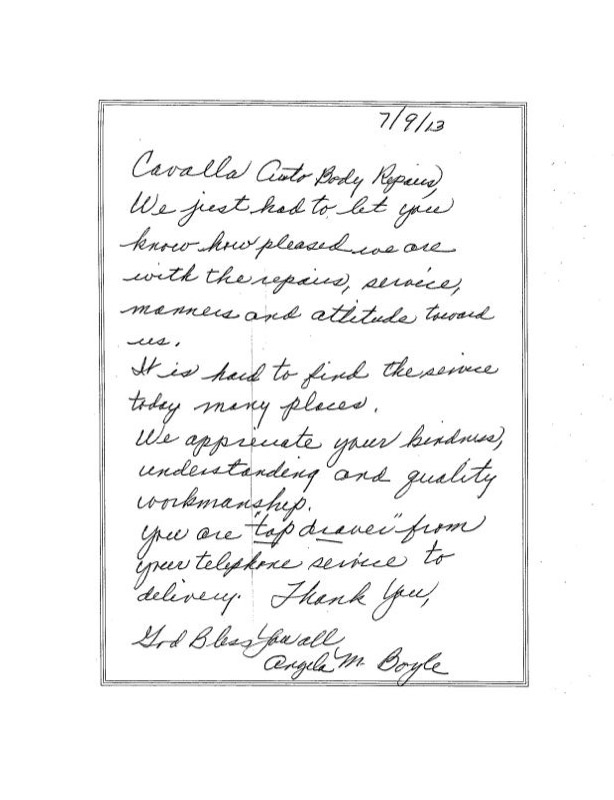 7/9/13
Cavalla Auto Body Repairs,
We just had to let you
know how pleased we are
with the repairs, service,
manners and attitude toward
us.
It is hard to find the service
today many places.
We appreciate your kindness,
understanding and quality
workmanship.
You are "top drawer" from
your telephone service to
delivery. Thank You,
God Bless You all
Angela M. Boyle